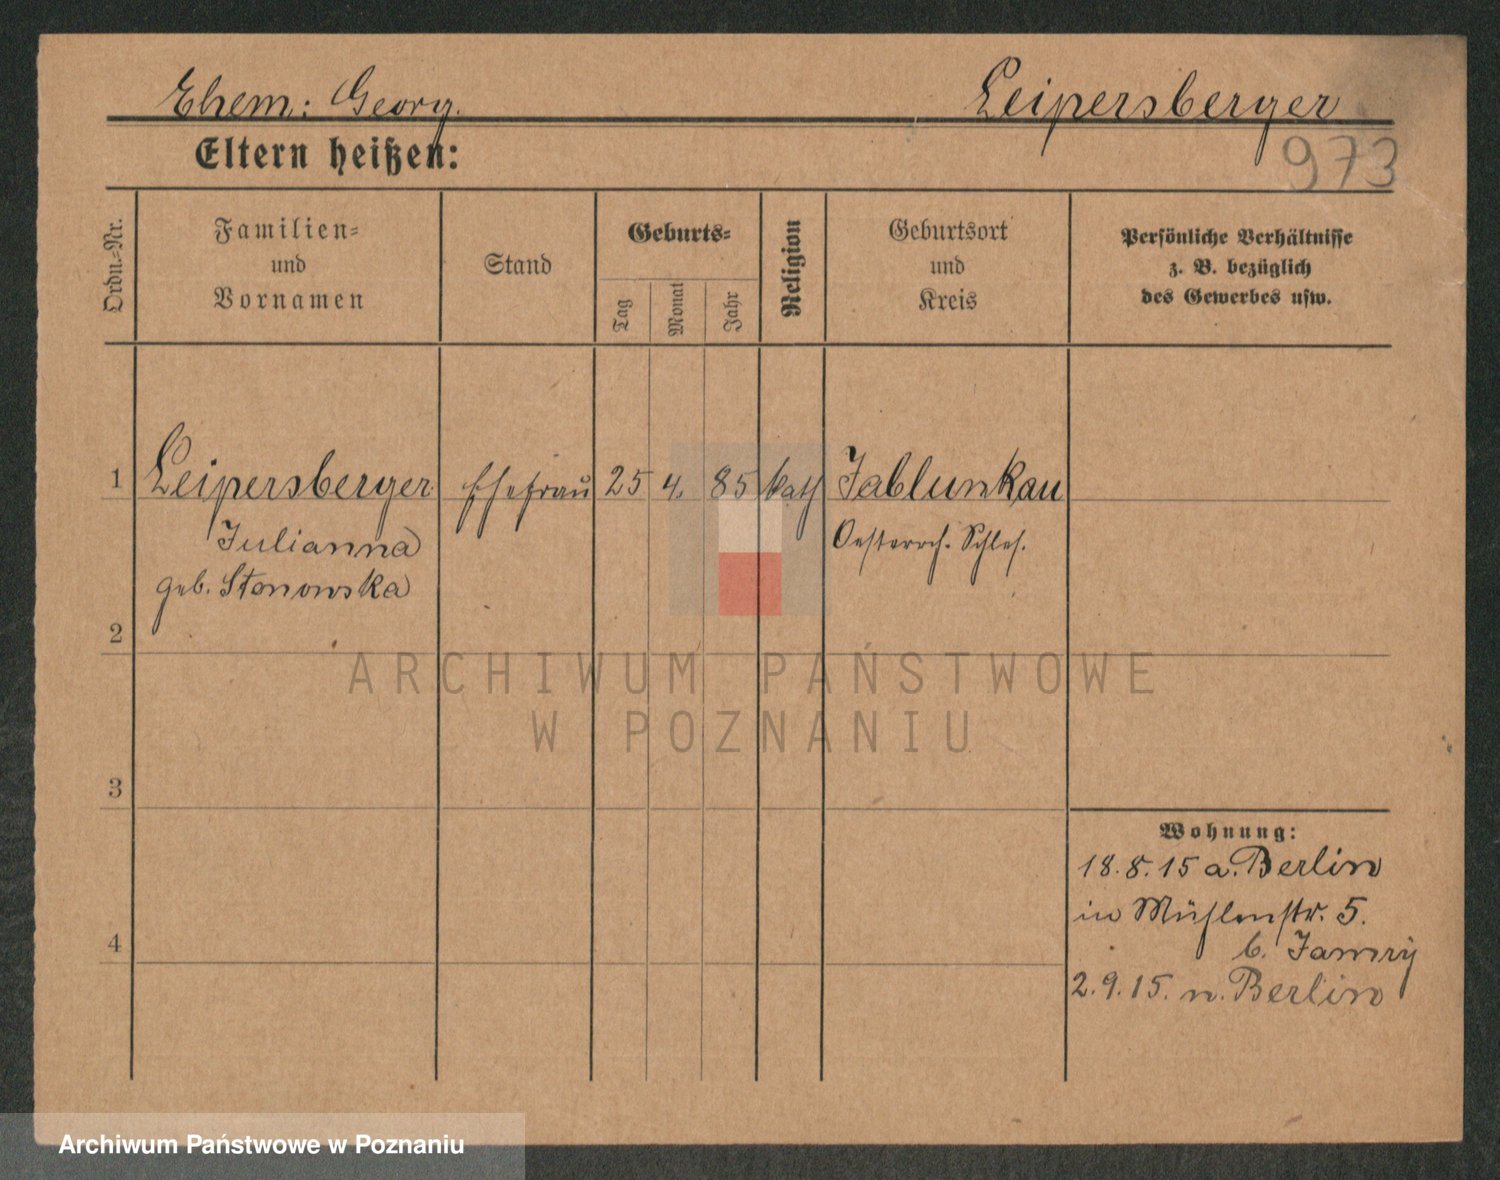 Ehem: Georg. Leipersberger
Eltern heißen:
973
Ordn.-Nr.
Familien-
und
Vornamen
Stand
Geburts-
Tag
Monat
Jahr
Religion
Geburtsort
und
Kreis
Persönliche Verhältnisse
z. B. bezüglich
des Gewerbes usw.
1 Leipersberger Ehefrau 25 4. 85 kath Jablunkau
Julianna Oesterrch. Schles.
geb. Stonowska
2
ARCHIWUM PAŃSTWOWE
W POZNANIU
3
Wohnung:
18.8.15 a. Berlin
in Mühlenstr. 5.
4
b.
2.9.15. n. Berlin
Archiwum Państwowe w Poznaniu